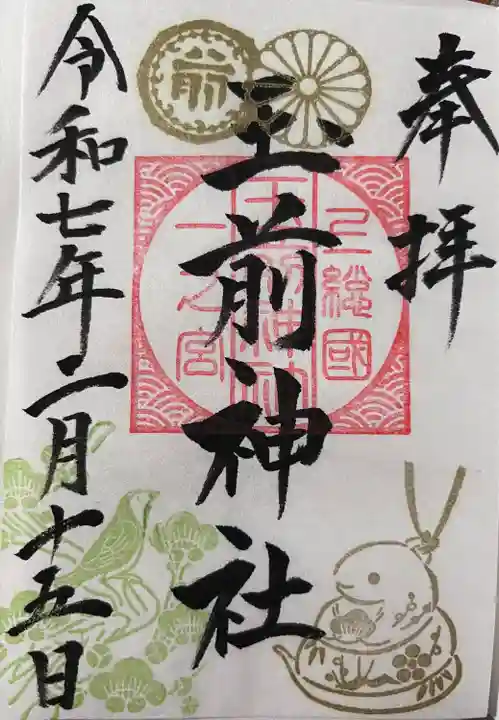 奉拝
上総國
玉前神社
一之宮
令和七年二月十五日
前